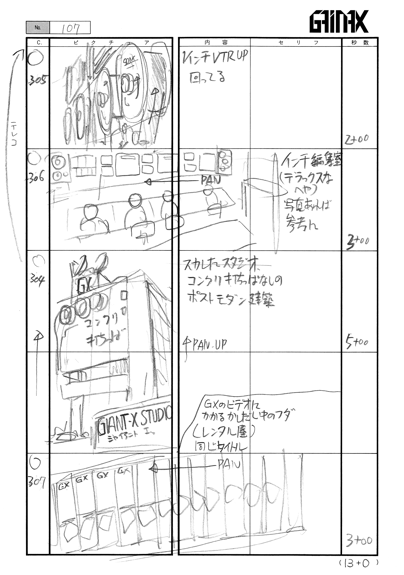 GAINAX
No. 107
C ピクチア 内容 セリフ 秒数
305
1インチVTR UP
回ってる
2+00
306
PAN
1インチ編集室
(デラックスな
へや)
写真あれば
参考に
3+00
304
GX
コンクリ
打ちっぱ
スタジオ
コンクリ打ちっぱなしの
ポストモダン建築
PAN.UP
5+00
GIANT-X STUDIO
ジャイアント
GXのビデオに
かかるかしだし中のフダ
(レンタル屋)
同じタイトル
307
GX GX GX GX
PAN
3+00
(13+0)